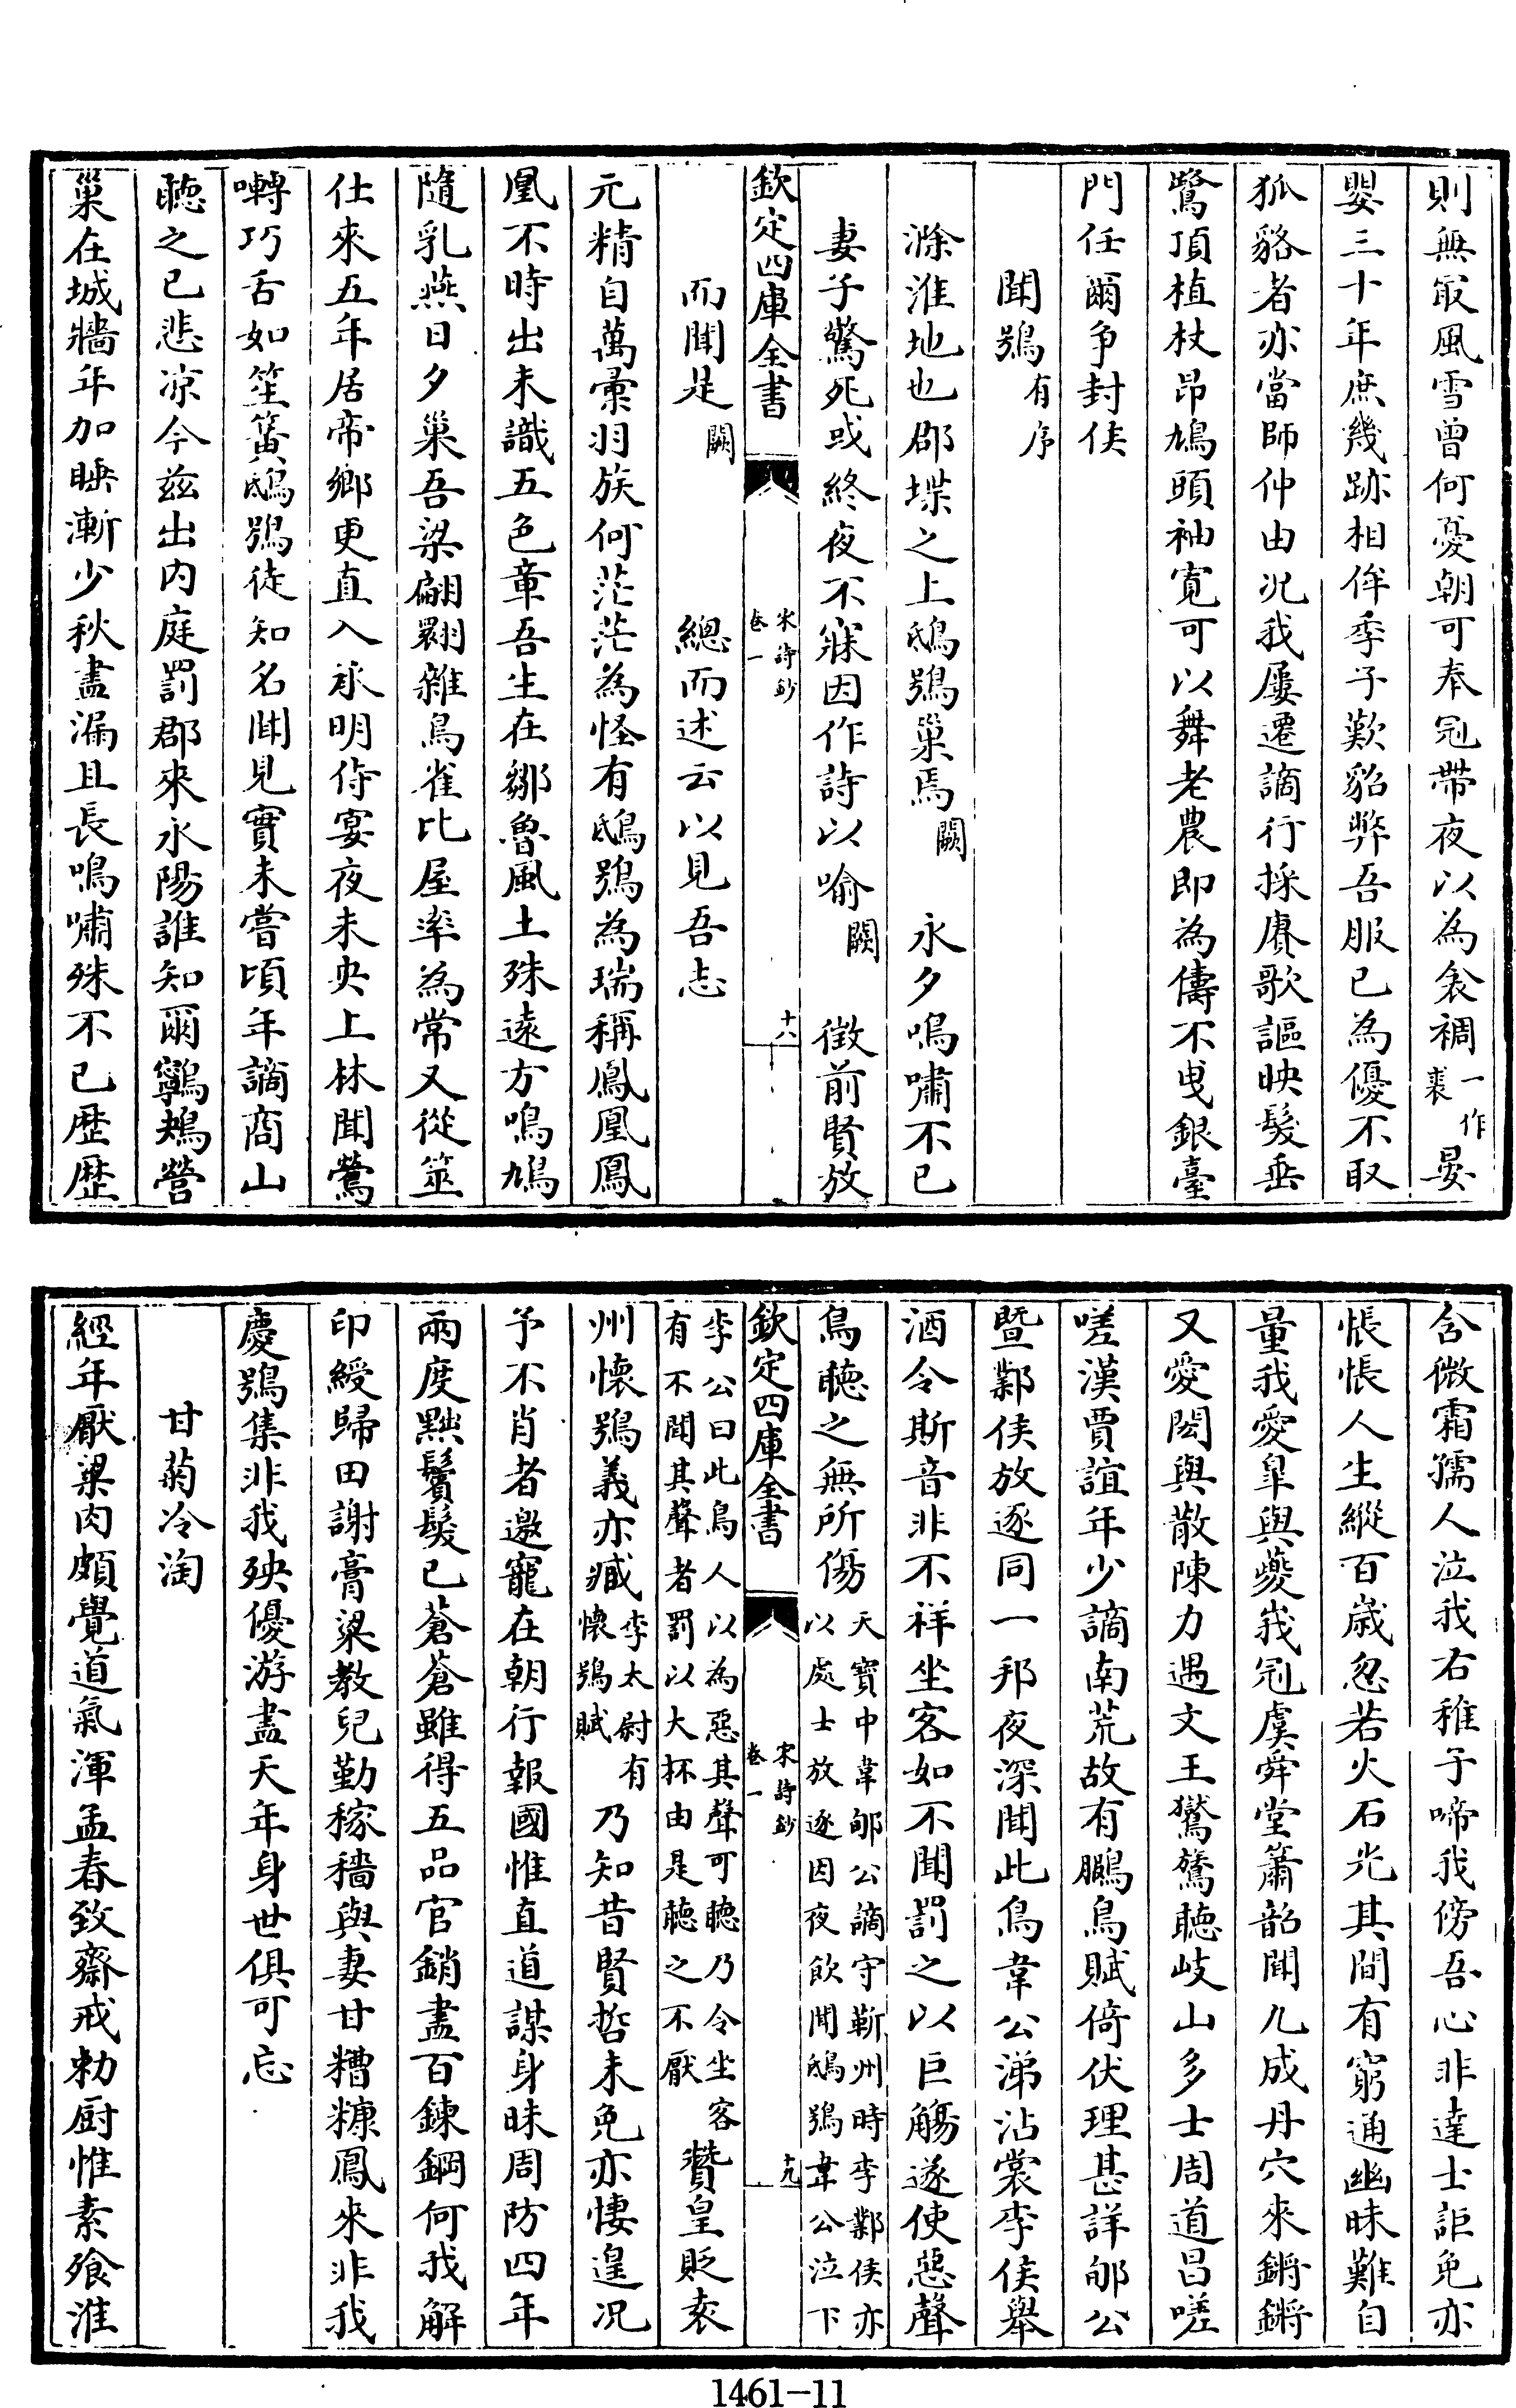 則無敢風雪曾何憂朝可奉冠帶夜以為衾裯一作裘晏
嬰三十年庶幾跡相侔季子歎貂弊吾服已為優不取
狐貉者亦當師仲由况我屢遷謫行採賡歌謳映髮垂
鷺頂植杖昂鳩頭袖寛可以舞老農即為儔不曳銀臺
門任爾争封侯
聞鴞有序
滁淮地也郡堞之上鴟鴞巢焉闕永夕鳴嘯不已
妻子驚死或終夜不寐因作詩以喻闕徴前賢放
欽定四庫全書
宋詩鈔
卷一
十八
而聞是闕總而述云以見吾志
元精自萬彚羽族何茫茫為怪有鴟鴞為瑞稱鳳凰鳳
凰不時出未識五色章吾生在鄒魯風土殊遠方鳴鳩
隨乳燕日夕巢吾梁翩翾雜鳥雀比屋率為常又從筮
仕來五年居帝鄉更直入承明侍宴夜未央上林聞鶯
囀巧舌如笙簧鴟鴞徒知名聞見實未嘗頃年謫商山
聴之已悲凉今兹出内庭罰郡來永陽誰知爾鸋鴂營
巢在城牆年加睡漸少秋盡漏且長鳴嘯殊不已歴歴
含微霜孺人泣我右稚子啼我傍吾心非達士詎免亦
悵悵人生縱百歳忽若火石光其間有窮通幽昧難自
量我愛臯與夔峩冠虞舜堂簫韶聞九成丹穴來鏘鏘
又愛閎與散陳力遇文王鸑鷟聴岐山多士周道昌嗟
嗟漢賈誼年少謫南荒故有鵩鳥賦倚伏理甚詳郇公
暨鄴侯放逐同一邦夜深聞此鳥韋公涕沾裳李侯舉
酒令斯音非不祥坐客如不聞罰之以巨觴遂使惡聲
鳥聴之無所傷天寳中韋郇公謫守蘄州時李鄴侯亦以處士放逐因夜飲聞鴟鴞韋公泣下
欽定四庫全書
宋詩鈔
卷一
十九
李公曰此鳥人以為惡其聲可聴乃令坐客有不聞其聲者罰以大杯由是聴之不厭贊皇貶袁
州懷鴞義亦臧李太尉有懷鴞賦乃知昔賢哲未免亦悽遑况
予不肖者邀寵在朝行報國惟直道謀身昧周防四年
兩度黜鬢髮已蒼蒼雖得五品官銷盡百鍊鋼何我解
印綬歸田謝膏粱教兒勤稼穡與妻甘糟糠鳳來非我
慶鴞集非我殃優游盡天年身世俱可忘
甘菊冷淘
經年厭粱肉頗覺道氣渾孟春致齋戒勅厨惟素飱淮
1461-11